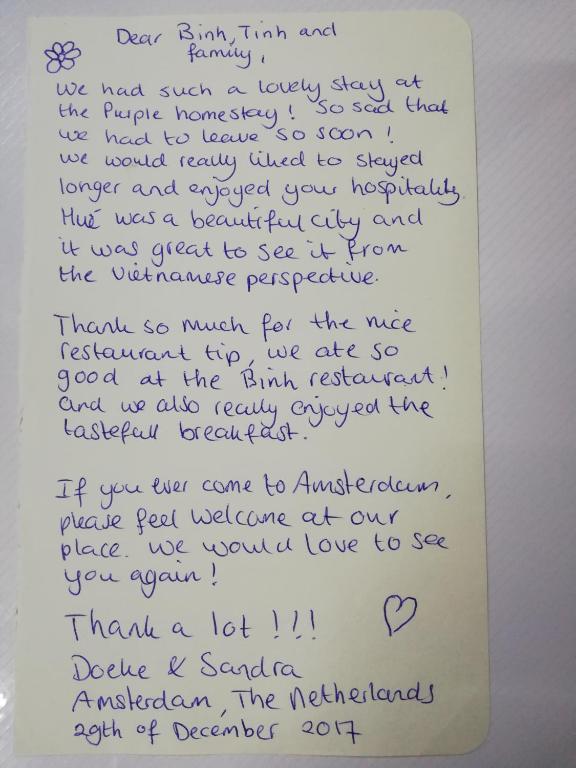 Dear Binh, Tinh and
family,
We had such a lovely stay at
the Purple homestay! So sad that
we had to leave so soon!
We would really liked to stayed
longer and enjoyed your hospitality.
Hué was a beautiful city and
it was great to see it from
the Vietnamese perspective.
Thank so much for the nice
restaurant tip, we ate so
good at the Binh restaurant!
And we also really enjoyed the
tastefull breakfast.
If you ever come to Amsterdam,
please feel welcome at our
place. We would love to see
you again!
Thank a lot!!!
Doeke & Sandra
Amsterdam, The Netherlands
29th of December 2017